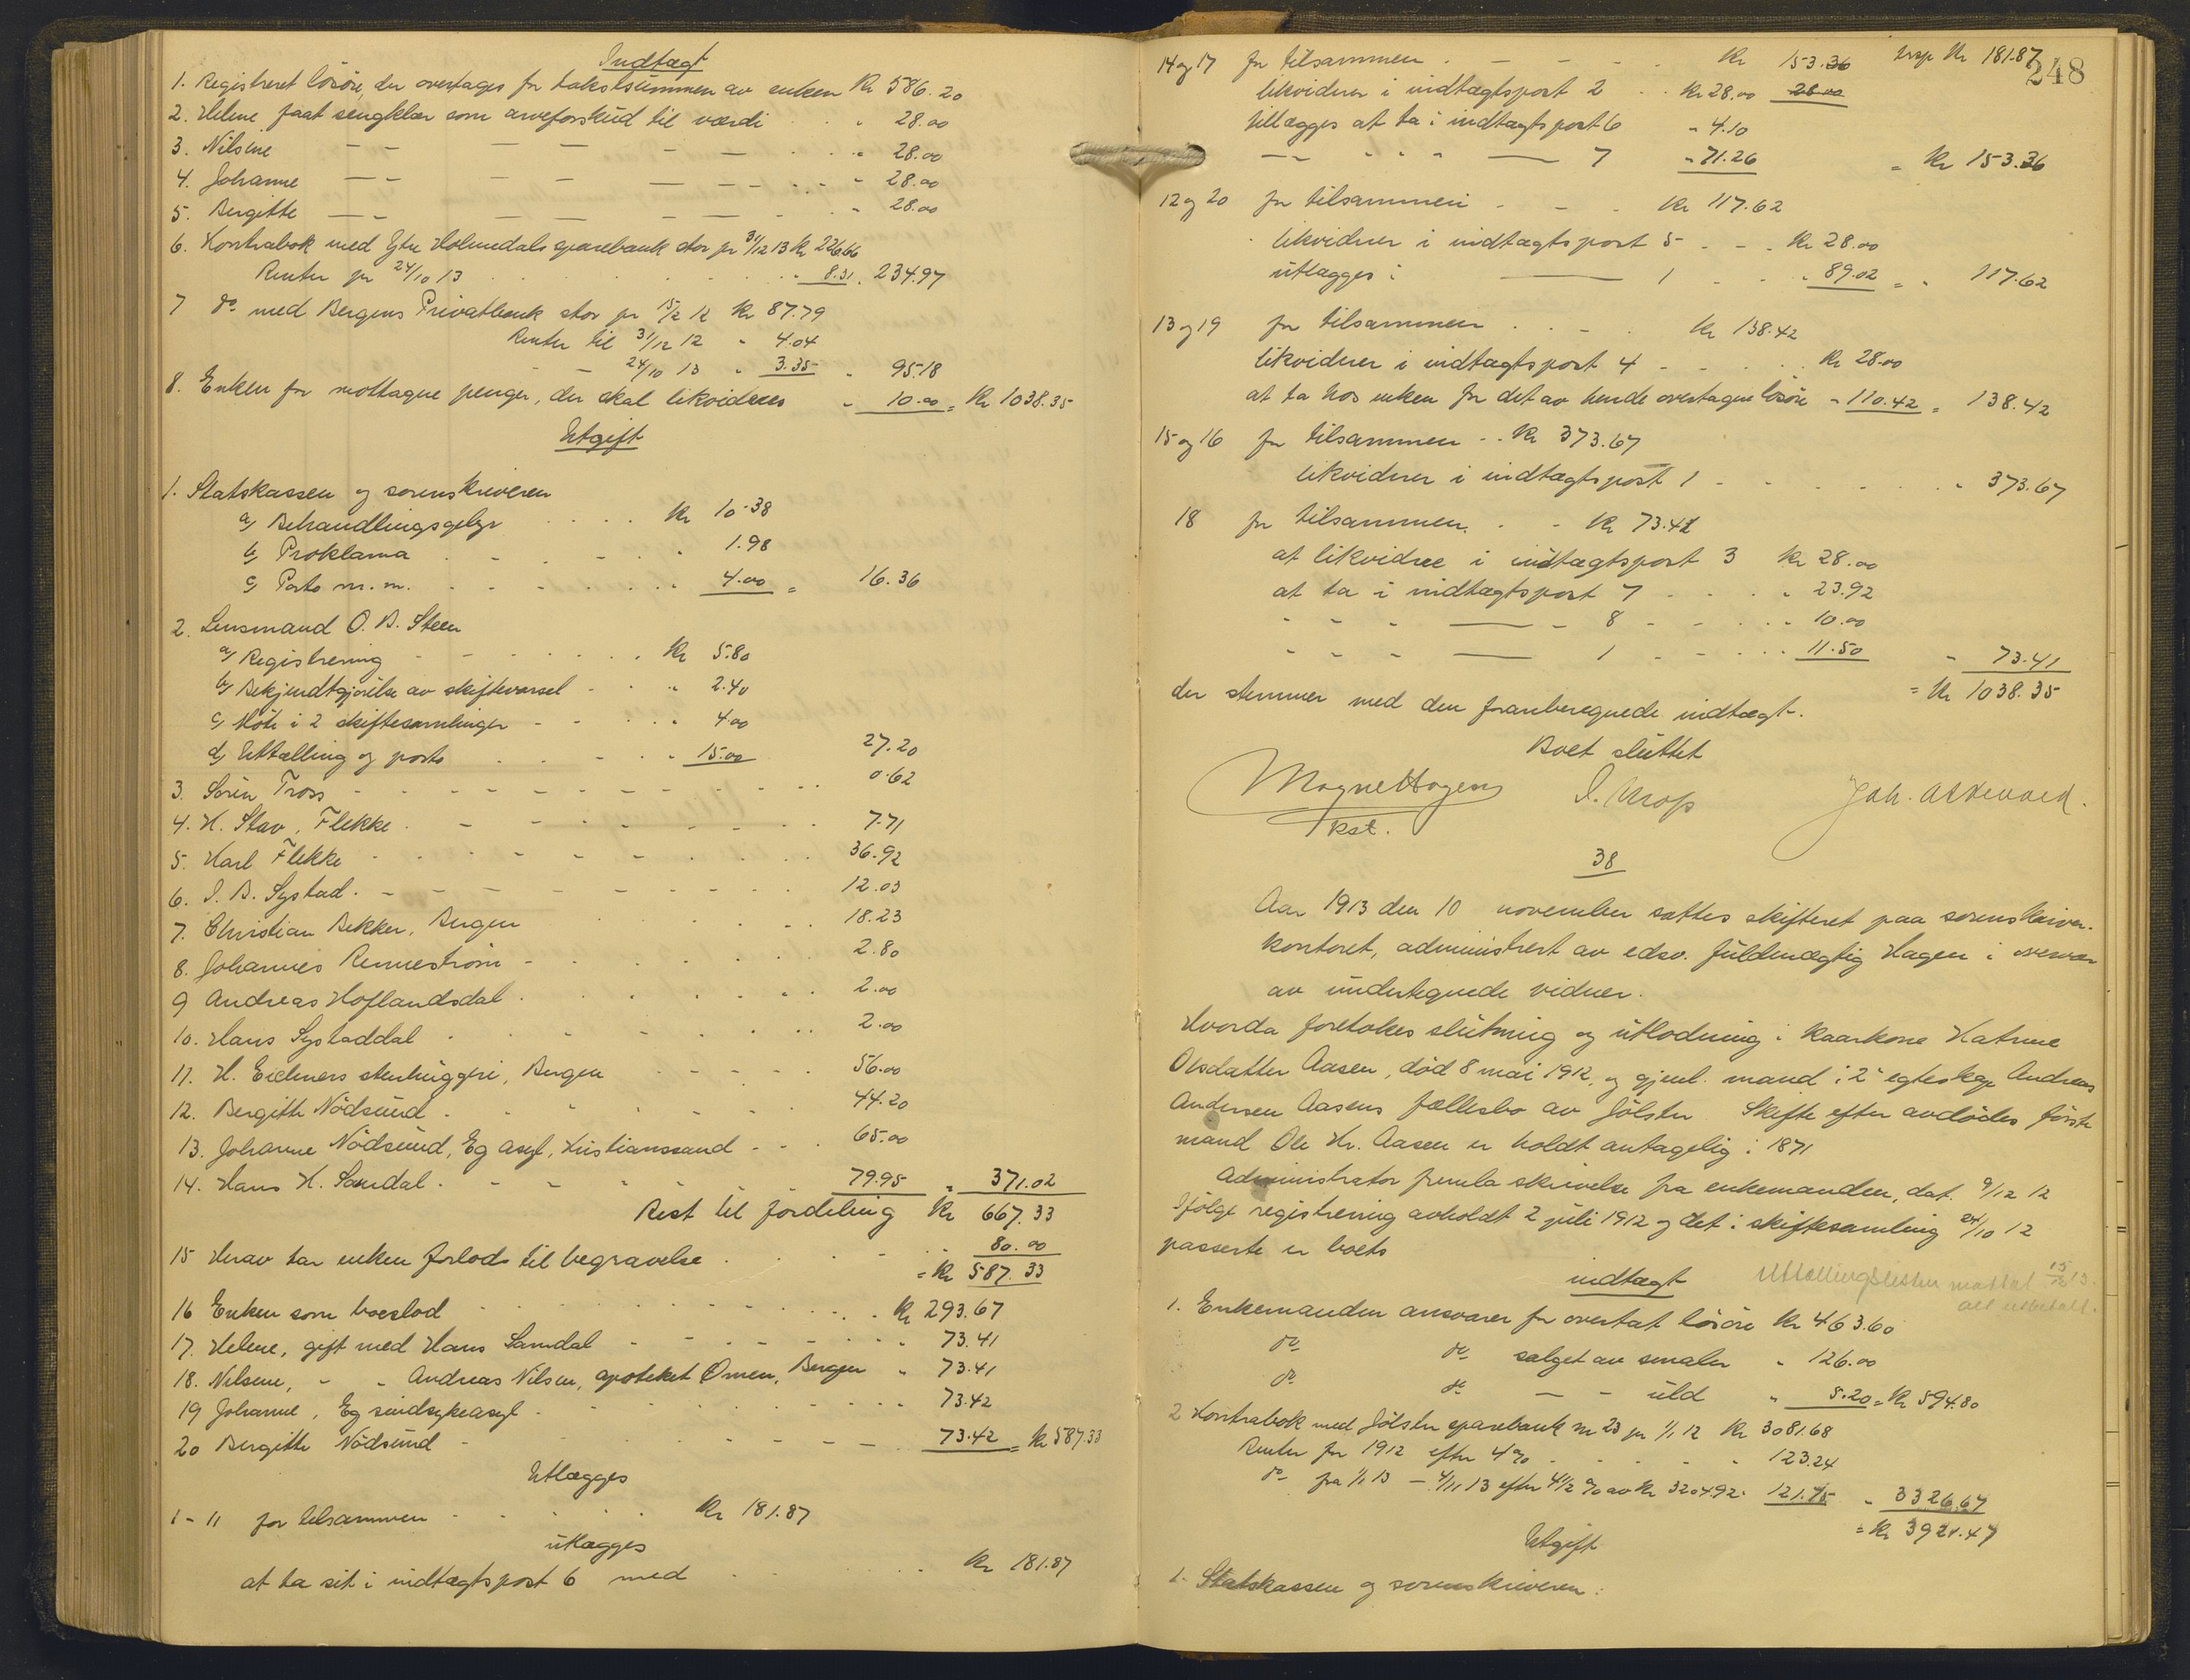 Indtægt
1. Registreret lösöre, der overtages for takstsummen av enken Kr 586.20
2. Helene faat sengklær som arveforskud til værdi . . „ 28.00
3. Nilsine — — — — — — . . „ 28.00
4. Johanne — — — — — — . . „ 28.00
5. Bergitte — — — — — — . „ 28.00
6. Kontrabok med Ytre Holmedals sparebank stor pr 31/12 13 Kr 226.66
Renter pr 24/10 13 . . . . „ 8.31 . 234.97
7 do med Bergens Privatbank stor pr 15/2 12 Kr 87.79
Renter til 31/12 12 „ 4.04
— 24/10 13 „ 3.35 „ 95.18
8. Enken for mottagne penger, der skal likvideres „ 10.00 = Kr 1038.35
Utgift
1. Statskassen og sorenskriveren
a, Behandlingsgebyr . . . . Kr 10.38
b, Proklama . . . . „ 1.98
c, Porto m.m. . . . . „ 4.00 = 16.36
2. Lensmand O. B. Steen
a, Registrering . . . . Kr 5.80
b, Bekjendtgjörelse av skiftevarsel . . „ 2.40
c, Möte i 2 skiftesamlinger . . . „ 4.00
d, Uttælling og porto . . . „ 15.00 27.20
3. Sörin Tross . . . . . . . 0.62
4. H. Stav, Flekke . . . . . . 7.71
5. Karl Flekke . . . . . . 36.92
6. I. B. Systad . . . . . . 12.03
7. Christian Bekker, Bergen . . . 18.23
8. Johannes Rennestrøm . . . . 2.80
9 Andreas Hoflandsdal . . . . 2.00
10. Hans Systaddal . . . . . 2.00
11. H. Eichners stenhuggeri, Bergen . . . 56.00
12. Bergitte Nödsund . . . . . 44.20
13. Johanne Nödsund, Eg asyl, Kristianssand . . . 65.00
14. Hans H. Samdal . . . . 79.95 „ 371.02
Rest til fordeling Kr 667.33
15 Herav har enken forlods til begravelse . . . 80.00
= Kr 587.33
16 Enken som boeslod . . . . . Kr 293.67
17. Helene, gift med Hans Samdal . . . . 73.41
18. Nilsine, „ „ Andreas Nilsen, apoteket Ørnen, Bergen „ 73.41
19 Johanne, Eg sindsykeasyl . . . . . 73.42
20 Bergitte Nödsund . . . . . 73.42 = Kr 587.33
Utlægges
1-11 for tilsammen . . . . Kr 181.87
utlægges
at ta sit i indtægtspost 6 med . . . Kr 181.87
248
14 og 17 for tilsammen . — — . Kr 153.36 trsp Kr 181.87
likviderer i indtægtspost 2 . . Kr 28.00 28.00
tillægges at ta i indtægtspost 6 „ 4.10
— „ „ „ — 7 „ 71.26 = Kr 153.36
12 og 20 for tilsammen . — . Kr 117.62
likviderer i indtægtspost 5 . . Kr 28.00
utlægges i — 1 . . „ 89.02 = „ 117.62
13 og 19 for tilsammen . . — . Kr 138.42
likviderer i indtægtspost 4 . . . . Kr 28.00
at ta hos enken for det av hende overtagne lösöre „ 110.42 = 138.42
15 og 16 for tilsammen . . Kr 373.67
likviderer i indtægtspost 1 . . . . . „ 373.67
18 for tilsammen . . Kr 73.41
at likvidere i indtægtspost 3 Kr 28.00
at ta i indtægtspost 7 . . . „ 23.92
„ „ „ — „ 8 . . . „ 10.00
„ „ „ — 1 . . . „ 11.50 „ 73.41
= Kr 1038.35
der stemmer med den foranberegnede indtægt.
Boet sluttet
Magne Hagen
kst.
Joh. Askevold.
38
Aar 1913 den 10 november sattes skifteret paa sorenskriver-
kontoret, administrert av edsv. fuldmægtig Hagen i overvær
av undertegnede vidner.
Hvorda foretokes slutning og utlodning i kaarkone Katrine
Olsdatter Aasen, död 8 mai 1912, og gjenl. mand i 2° egteskap Andreas
Andersen Aasens fællesbo av Jölster Skifte efter avdödes förste
mand Ole Kr. Aasen er holdt antagelig i 1871
Administrator fremla skrivelse fra enkemanden, dat. 9/12 12
Ifölge registrering avholdt 2 juli 1912 og det i skiftesamling 24/10 12
passerte er boets
indtægt
Uttællingslisten mottat 15/12 13.
alt utbetalt.
1. Enkemanden ansvarer for overtat lösöre Kr 463.60
do do salget av smaler „ 126.00
do do — „ uld „ 5.20 = Kr 594.80
2 Kontrabok med Jölster sparebank nr 23 pr 1/1 12 Kr 3081.68
Renter for 1912 efter 4% . . . . „ 123.24
do fra 1/1 13 — 4/11 13 efter 4 1/2 % av Kr 3204.92. 121.75 „ 3326.67
= Kr 3921.47
Utgift
1. Statskassen og sorenskriveren: